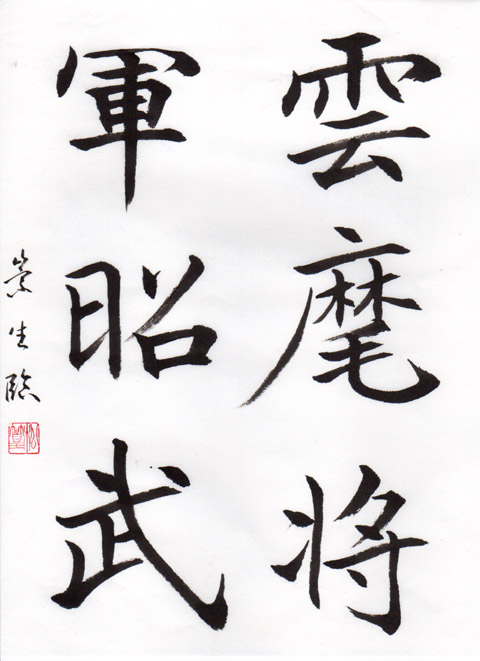 雲麾将
軍昭武
崇生臨